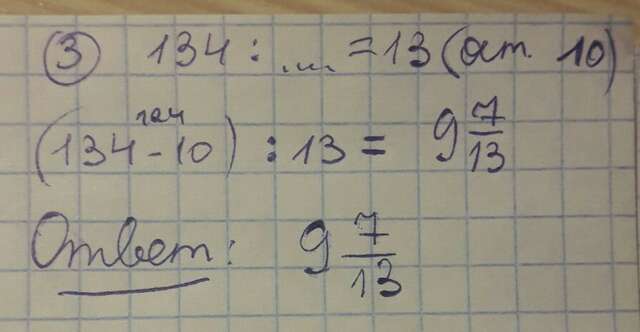 ③ 134 : ... = 13 (ост. 10)
(134 - 10) : 13 = 9 7/13
Ответ: 9 7/13